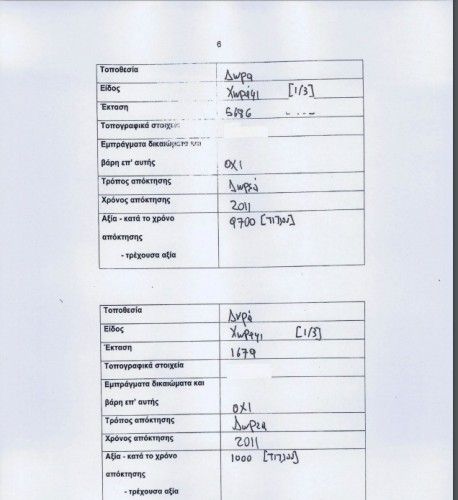 6
Τοποθεσία Δωρα
Είδος Χωράφι [1/3]
Έκταση 5686
Τοπογραφικά στοιχεία
Εμπράγματα δικαιώματα και
βάρη επ' αυτής ΟΧΙ
Τρόπος απόκτησης Δωρεά
Χρόνος απόκτησης 2011
Αξία - κατά το χρόνο 9700 [τίτλου]
απόκτησης
- τρέχουσα αξία
Τοποθεσία Δωρά
Είδος Χωράφι [1/3]
Έκταση 1679
Τοπογραφικά στοιχεία
Εμπράγματα δικαιώματα και
βάρη επ' αυτής ΟΧΙ
Τρόπος απόκτησης Δωρεα
Χρόνος απόκτησης 2011
Αξία - κατά το χρόνο 1000 [τίτλου]
απόκτησης
- τρέχουσα αξία